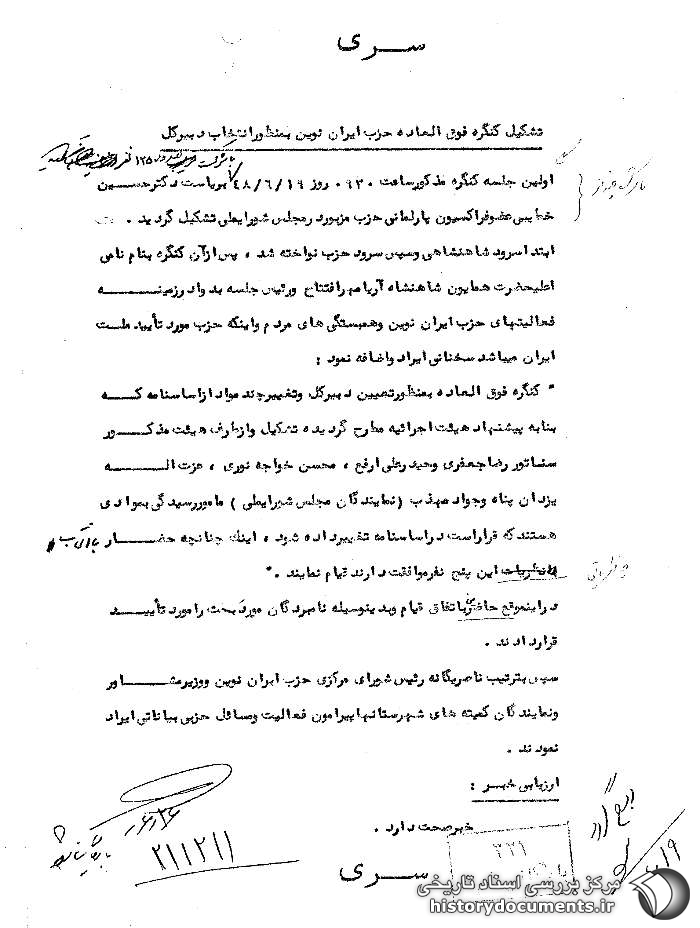 سری
تشکیل کنگره فوق العاده حزب ایران نوین بمنظور انتخاب دبیرکل
با شرکت ۱۲۵ نفر
اولین جلسه کنگره مذکور ساعت ۰۹۳۰ روز ۴۸/۶/۱۹ بریاست دکتر حسین
خطیبی عضو فراکسیون پارلمانی حزب مزبور در مجلس شورایملی تشکیل گردید .
ابتدا سرود شاهنشاهی وسپس سرود حزب نواخته شد ، پس ازآن کنگره بنام نامی
اعلیحضرت همایون شاهنشاه آریامهر افتتاح ورئیس جلسه بدوا درزمینه
فعالیتهای حزب ایران نوین وهمبستگی های مردم واینکه حزب مورد تأیید ملت
ایران میباشد سخنانی ایراد واضافه نمود :
" کنگره فوق العاده بمنظور تعیین دبیرکل وتغییر چند مواد از اساسنامه که
بنابه پیشنهاد هیئت اجرائیه مطرح گردیده تشکیل وازطرف هیئت مذکور
سناتور رضا جعفری وحیدرعلی ارفع ، محسن خواجه نوری ، عزت اله
یزدان پناه وجواد مهذب (نمایندگان مجلس شورایملی ) مامور رسیدگی بموادی
هستند که قراراست در اساسنامه تغییر داده شود ، اینك چنانچه حضار
بانظریات این پنج نفر موافقت دارند قیام نمایند . "
دراینموقع حاضرین باتفاق قیام وبدینوسیله نامبردگان مورد بحث را مورد تأیید
قرار دادند .
سپس بترتیب ناصر یگانه رئیس شورای مرکزی حزب ایران نوین ووزیر مشاور
ونمایندگان کمیته های شهرستانها پیرامون فعالیت ومسائل حزبی بیاناتی ایراد
نمودند .
ارزیابی خبر :
خبر صحت دارد .
۲۱۱۲۱۱
۳۲۱
سری
مرکز بررسی اسناد تاریخی
historydocuments.ir